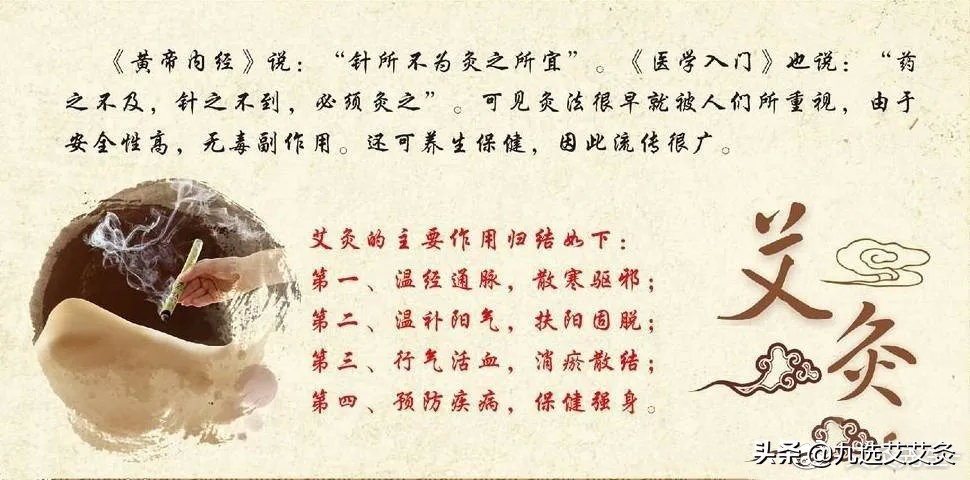 《黄帝内经》说：“针所不为灸之所宜”。《医学入门》也说：“药
之不及，针之不到，必须灸之”。可见灸法很早就被人们所重视，由于
安全性高，无毒副作用。还可养生保健，因此流传很广。
艾灸的主要作用归结如下：
第一、温经通脉，散寒驱邪；
第二、温补阳气，扶阳固脱；
第三、行气活血，消瘀散结；
第四、预防疾病，保健强身。
艾
灸
头条@九选艾艾灸